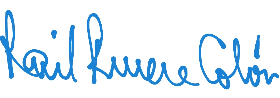 Raúl Rivera Colón